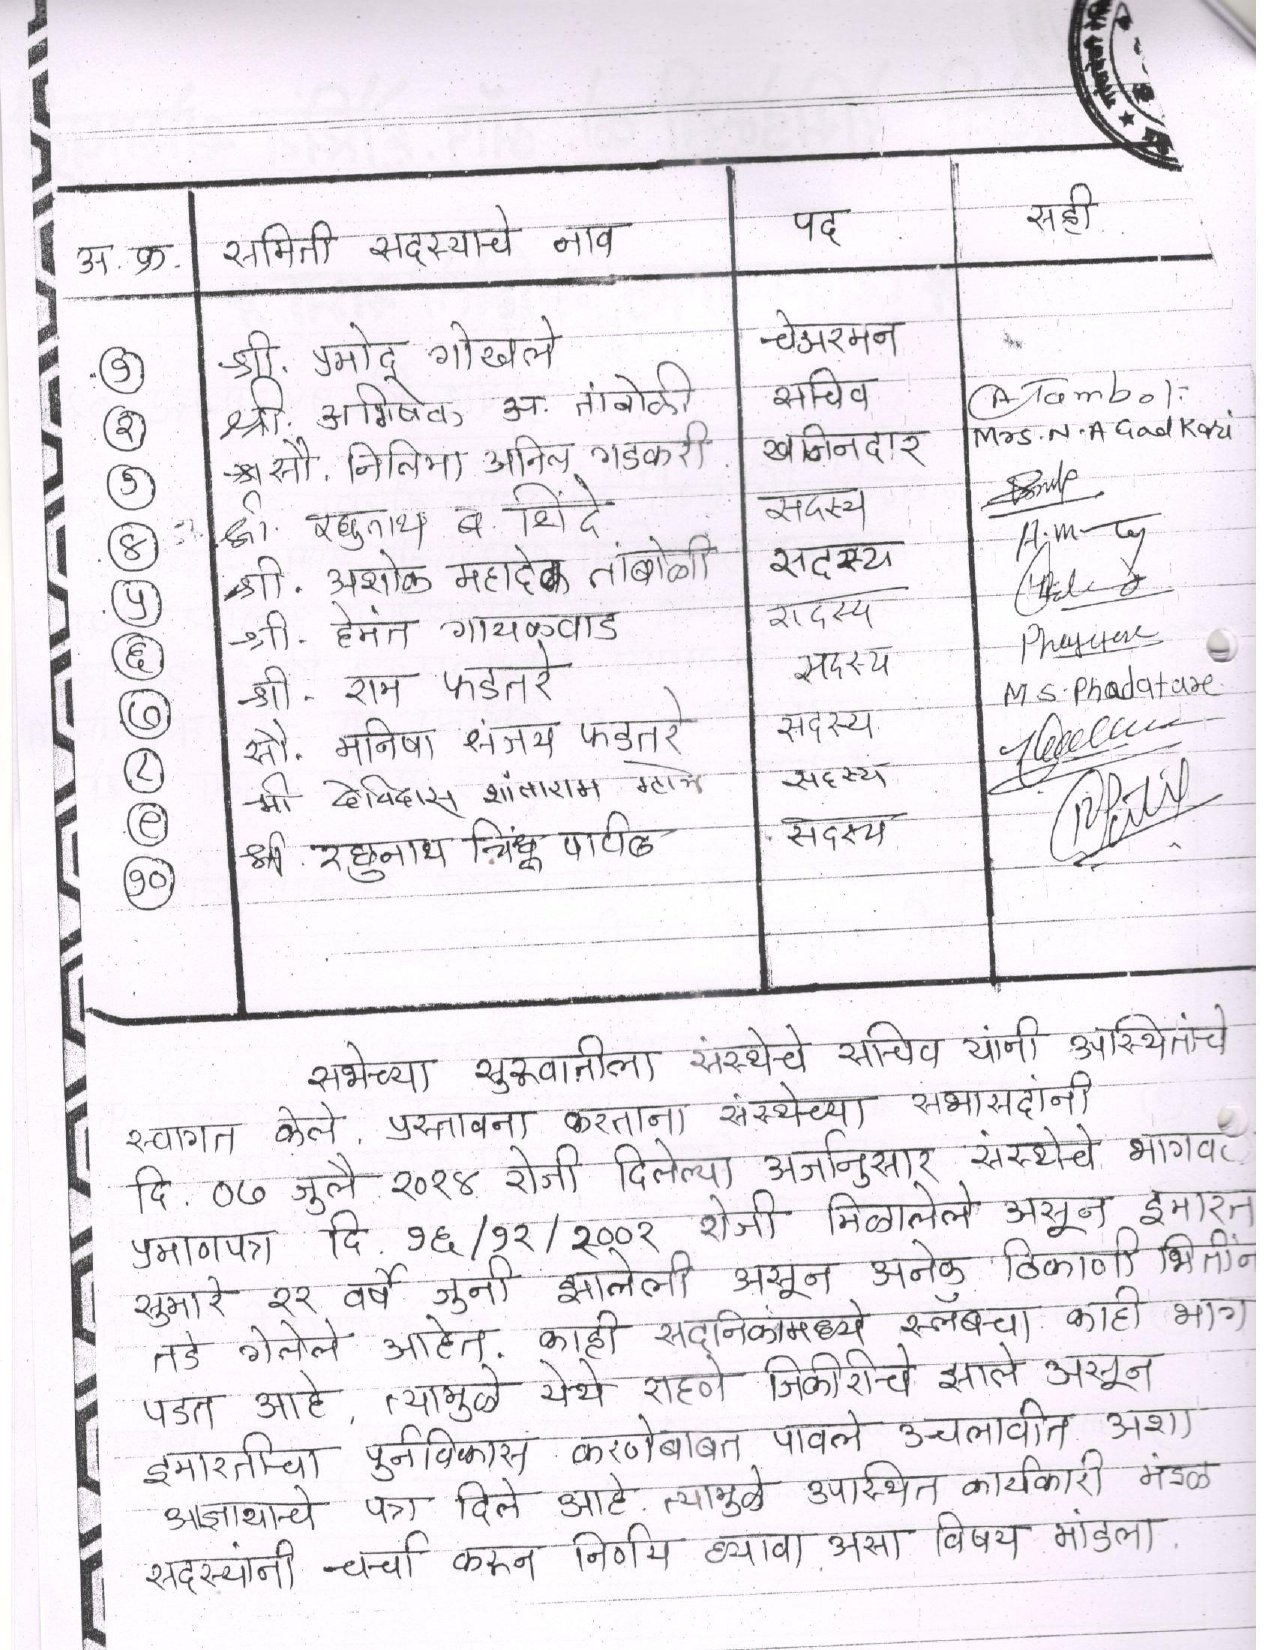 अ. क्र. समिती सदस्याचे नाव पद सही
१ श्री. प्रमोद गोखले चेअरमन
२ श्री. अभिषेक अ. तांबोळी सचिव A Tamboli
३ सौ. निलिमा अनिल गडकरी खजिनदार Mrs. N. A Gadkari
४ श्री. रघुनाथ ब. शिंदे सदस्य
५ श्री. अशोक महादेव तांबोळी सदस्य
६ श्री. हेमंत गायकवाड सदस्य
७ श्री. राम फडतरे सदस्य
८ सौ. मनिषा संजय फडतरे सदस्य M S. Phadatare
९ श्री देविदास शांताराम म्हात्रे सदस्य
१० श्री. रघुनाथ त्रिंबक पाटील सदस्य RPatil
सभेच्या सुरूवातीला संस्थेचे सचिव यांनी उपस्थितांचे
स्वागत केले. प्रस्तावना करताना संस्थेच्या सभासदांनी
दि. ०७ जुलै २०२४ रोजी दिलेल्या अर्जानुसार संस्थेचे भागवटा
प्रमाणपत्र दि. १६/१२/२००२ रोजी मिळालेले असून इमारत
सुमारे २२ वर्षे जुनी झालेली असून अनेक ठिकाणी भितींना
तडे गेलेले आहेत. काही सदनिकांमध्ये स्लॅबचा काही भाग
पडत आहे. त्यामुळे येथे राहणे जिकीरीचे झाले असून
इमारतीचा पुर्नविकास करणेबाबत पावले उचलावीत अशा
आशयाचे पत्र दिले आहे. त्यामुळे उपस्थित कार्यकारी मंडळ
सदस्यांनी चर्चा करून निर्णय घ्यावा असा विषय मांडला.